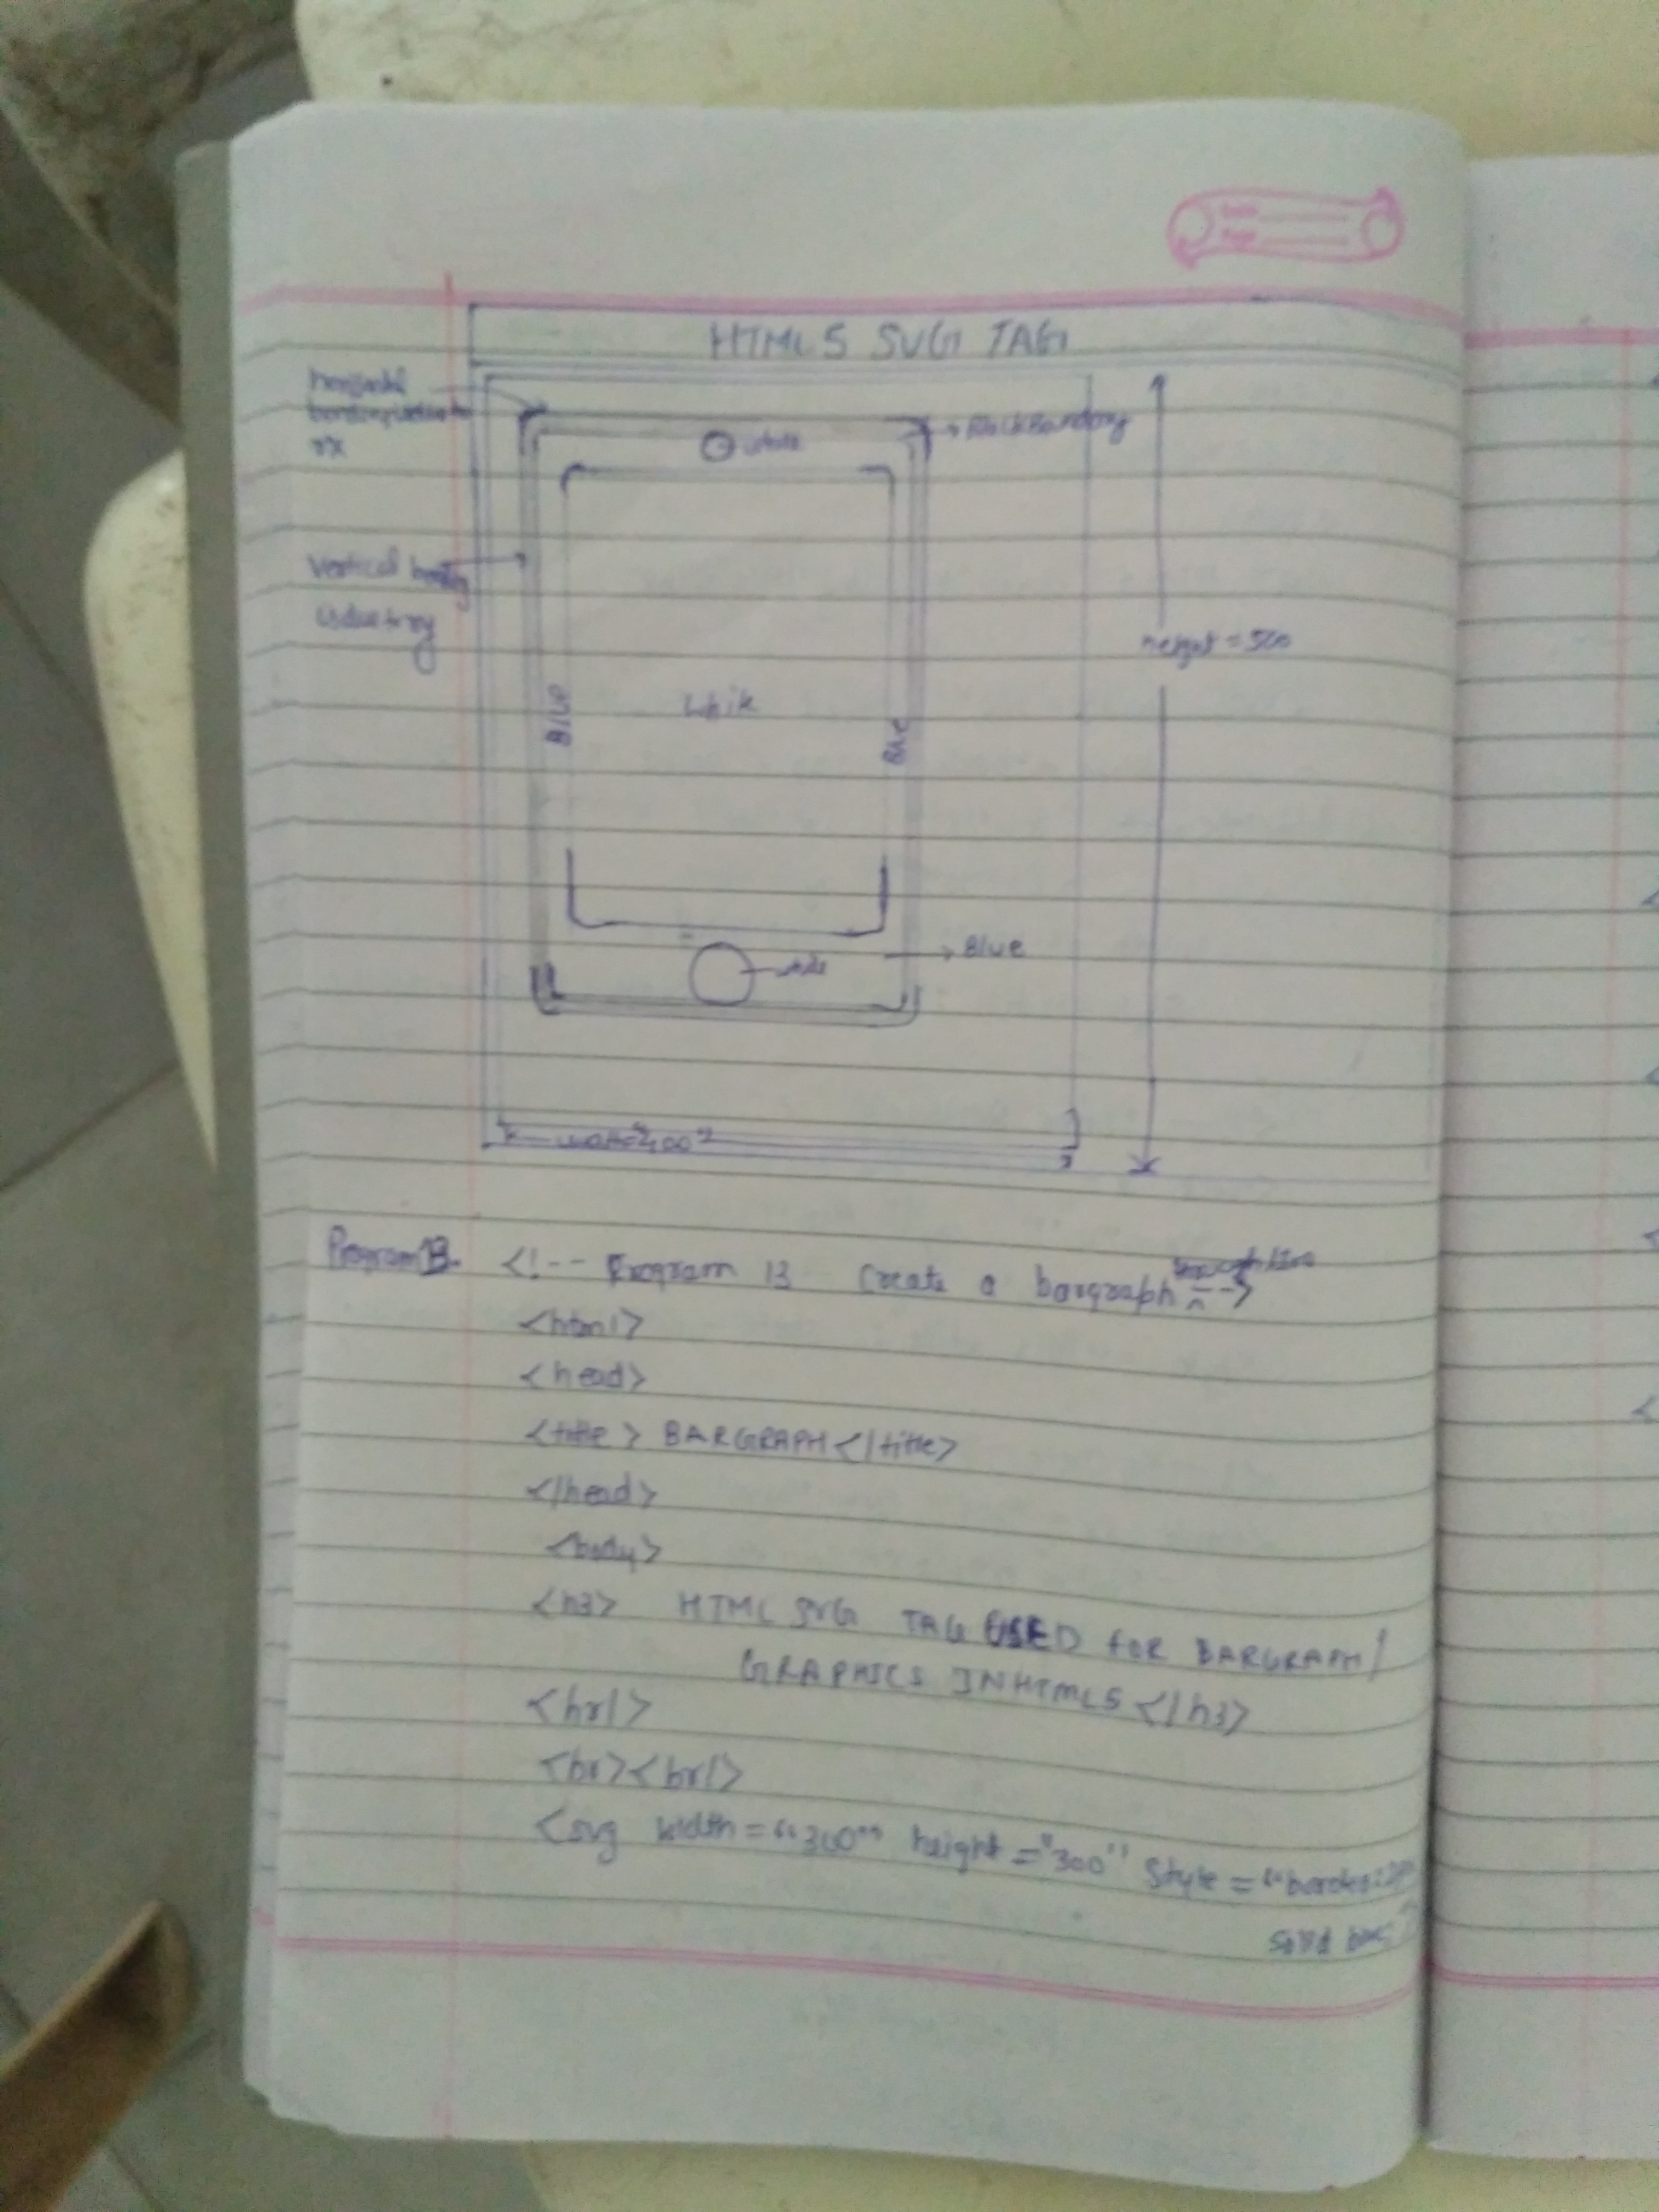 HTML5 SVG TAG
Horizontal
rx
→ Black Boundary
white
Vertical
using ry
height = 500
Blue
White
Blue
→ Blue
white
width="400"
Program 13. <!-- Program 13 Create a bargraph -->
<html>
<head>
<title> BARGRAPH </title>
</head>
<body>
<h3> HTML SVG TAG USED FOR BARGRAPH/
GRAPHICS IN HTML5 </h3>
<hr/>
<br><br/>
<svg width="300" height="300" style="border:2px
solid